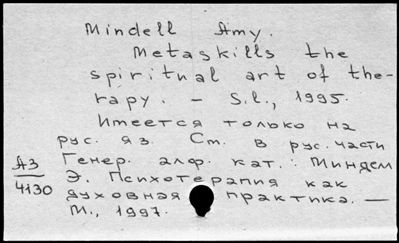 Mindell Amy.
Metaskills the
spiritual art of the-
rapy. – S.l., 1995.
Имеется только на
рус. яз. См. в рус. части
Генер. алф. кат.: Миндел
Э. Психотерапия как
духовная практика. —
М., 1997.
АЗ
4130